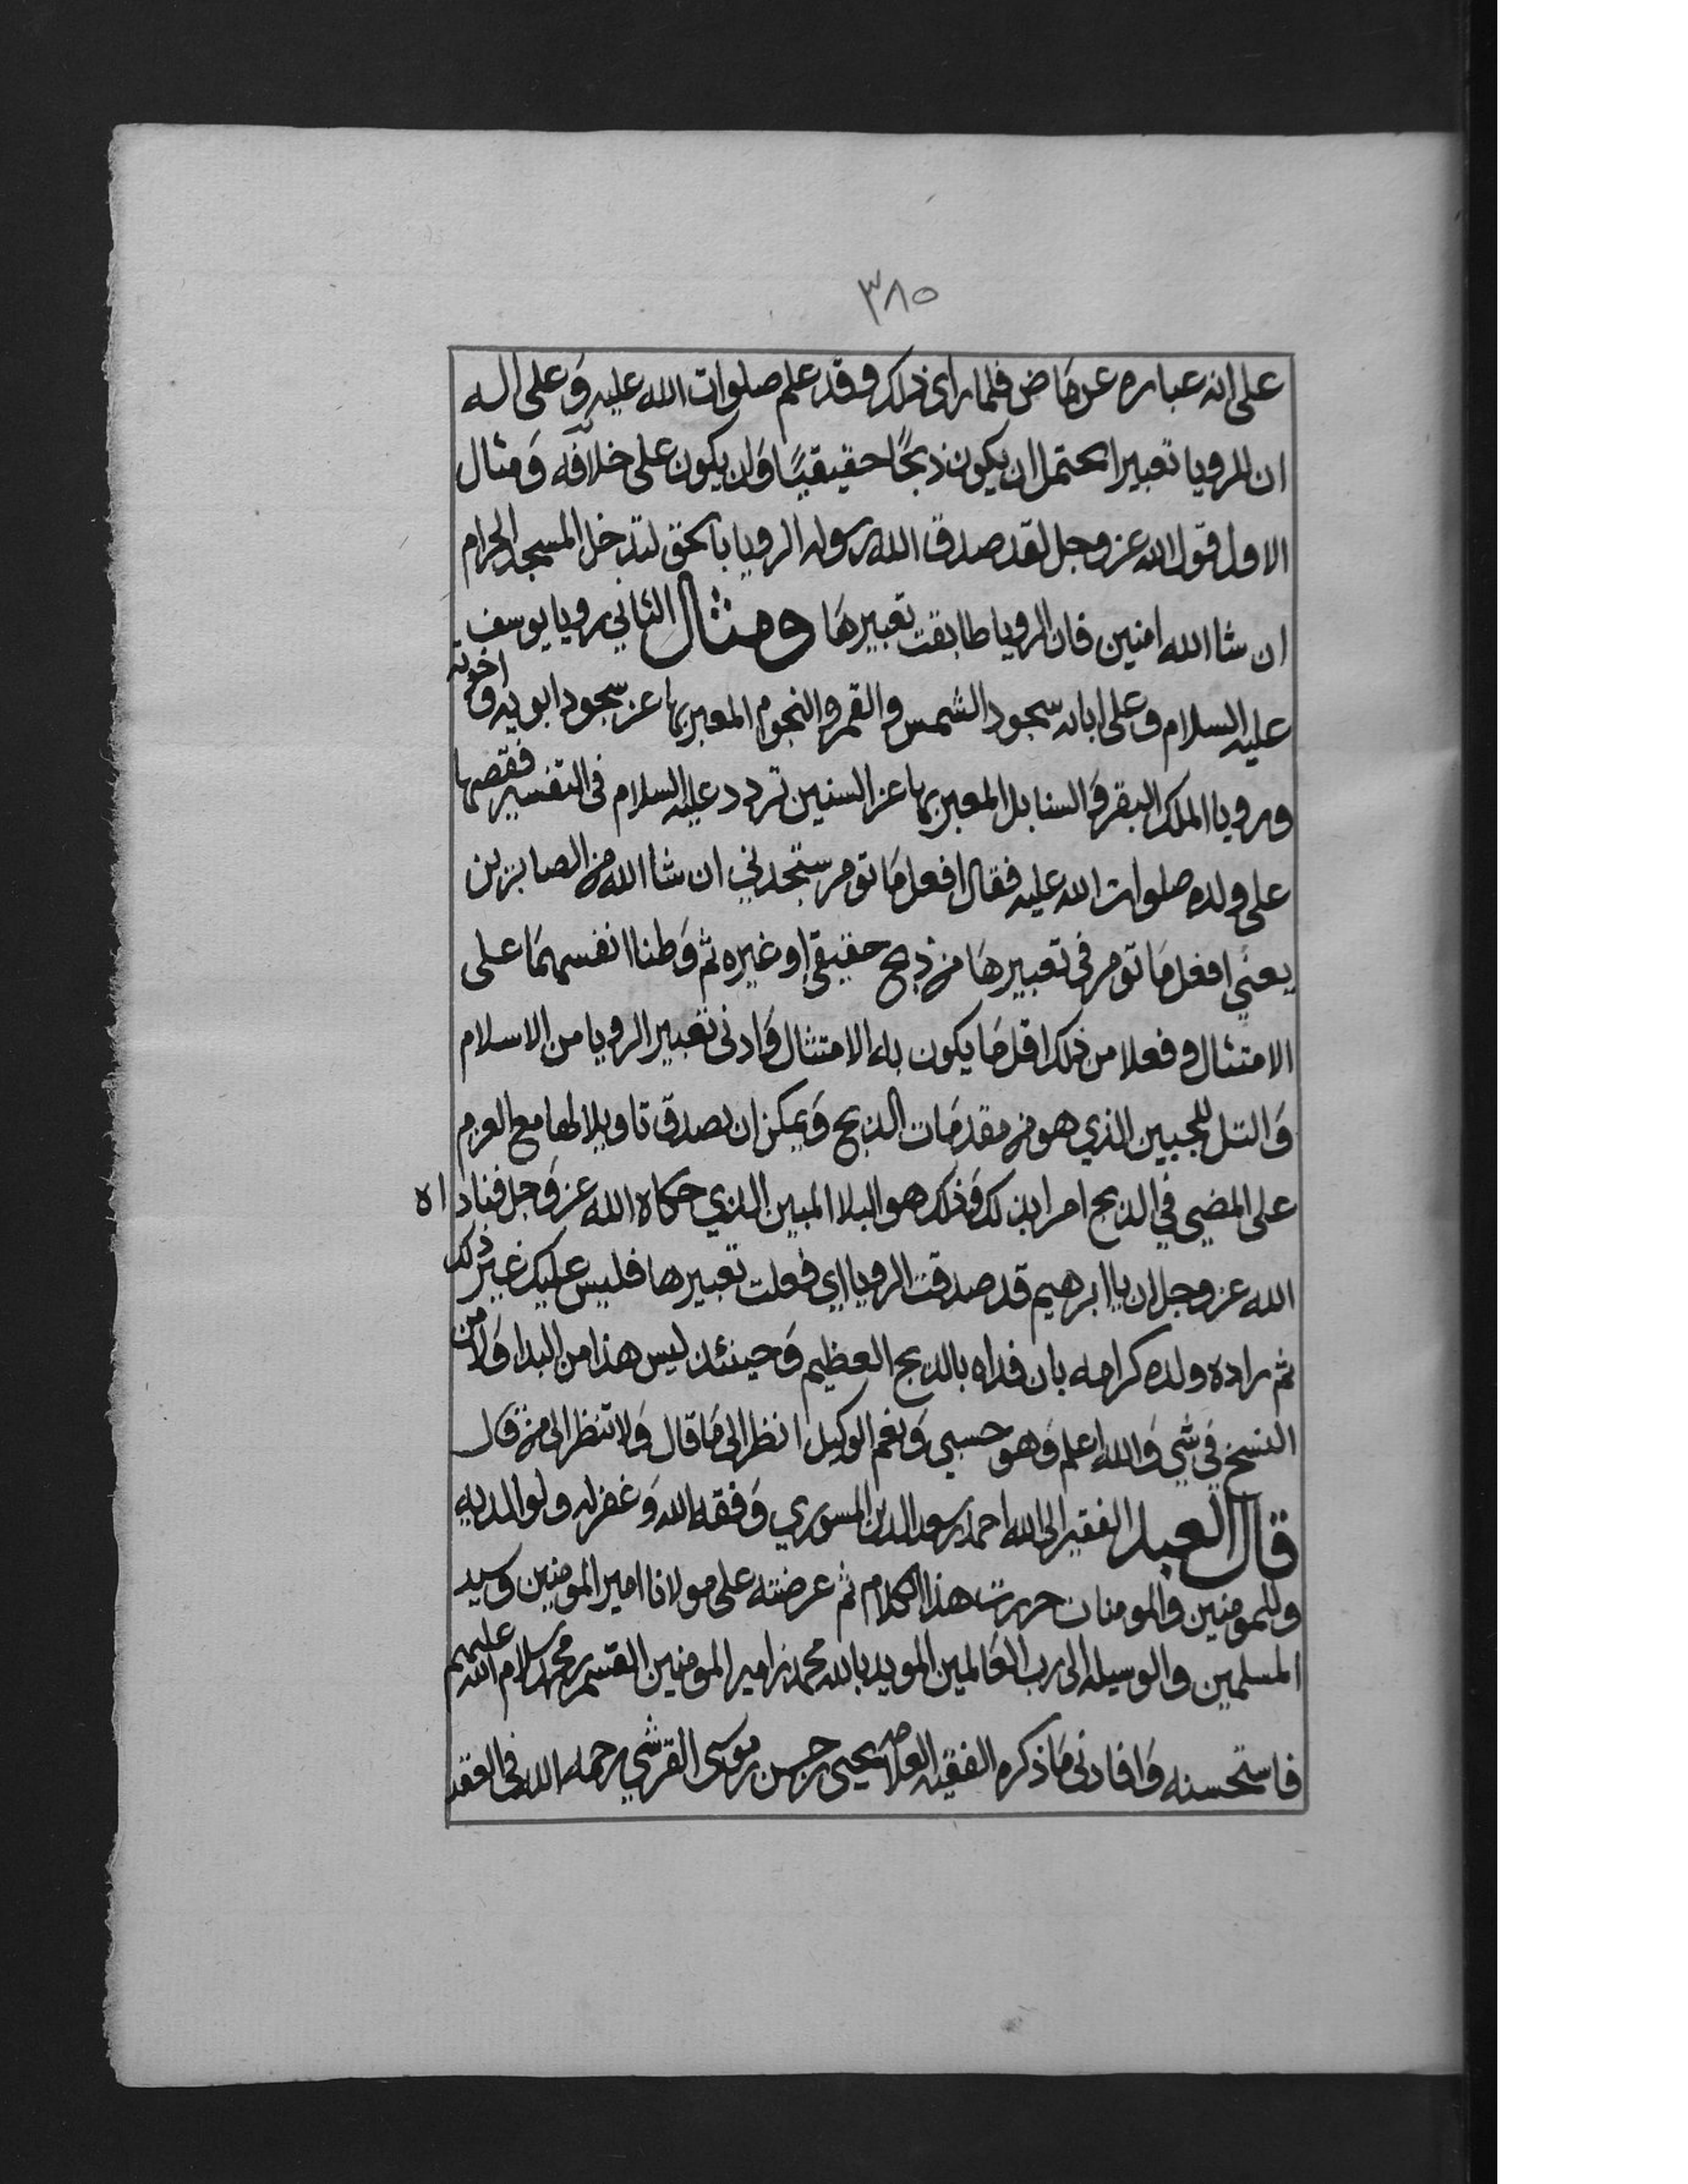 ٣٨٥
على انه عباره عن ماض فلما راى ذلك وقد علم صلوات الله عليه وعلى اله
ان للرويا تعبيرا يحتمل ان يكون ذبحًا حقيقيًا وان يكون على خلافه ومثال
الاول قول الله عز وجل لقد صدق الله رسوله الرويا بالحق لتدخلن المسجد الحرام
ان شا الله امنين فان الرويا طابقت تعبيرها ومثال الثاني رويا يوسف
عليه السلام وعلى ابائه سجود الشمس والقمر والنجوم المعبر بها عن سجود ابويه واخوته
ورويا الملك البقر والسنابل المعبر بها عن السنين تردد عليه السلام في التفسير فقصها
على ولده صلوات الله عليه فقال افعل ما تومر ستجدني ان شا الله من الصابرين
يعني افعل ما تومر في تعبيرها من ذبح حقيقي او غيره ثم وطنا انفسهما على
الامتثال وفعلا من ذلك اقل ما يكون به الامتثال وادنى تعبير الرويا من الاسلام
والتل للجبين الذي هو من مقدمات الذبح ويمكن ان يصدق تاويلا لها مع العزم
على المضي في الذبح امرا بذلك وذلك هو البلا المبين الذي حكاه الله عز وجل فناداه
الله عز وجل ان يا ابرهيم قد صدقت الرويا اي فعلت تعبيرها فليس عليك غير ذلك
ثم زاده ولده كرامه بان فداه بالذبح العظيم وحينئذ ليس هذا من البدا ولا من
النسخ في شي والله اعلم وهو حسبي ونعم الوكيل انظر الى ما قال ولا تنظر الى من قال
قال العبد الفقير الى الله احمد بن سعد الدين المسوري وفقه الله وغفر له ولوالديه
وللمومنين والمومنات حررت هذا الكلام ثم عرضته على مولانا امير المومنين وسيد
المسلمين والوسيله الى رب العالمين المويد بالله محمد بن امير المومنين القسم بن محمد سلام الله عليهم
فاستحسنه وافادني ما ذكره الفقيه العلامه يحيى بن حسن بن موسى القرشي رحمه الله في العقد